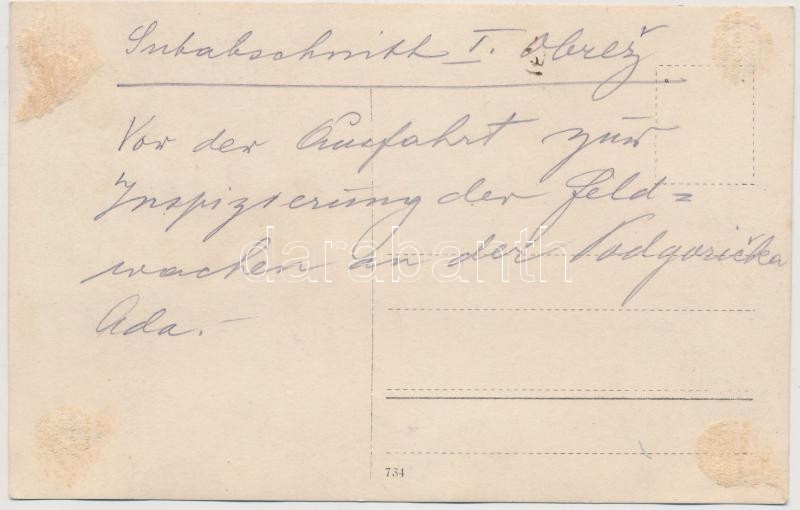 Subabschnitt I. Obrež
Vor der Ausfahrt zur
Inspizierung der Feld=
wachen an der Podgorička
Ada.-
darabanth
734